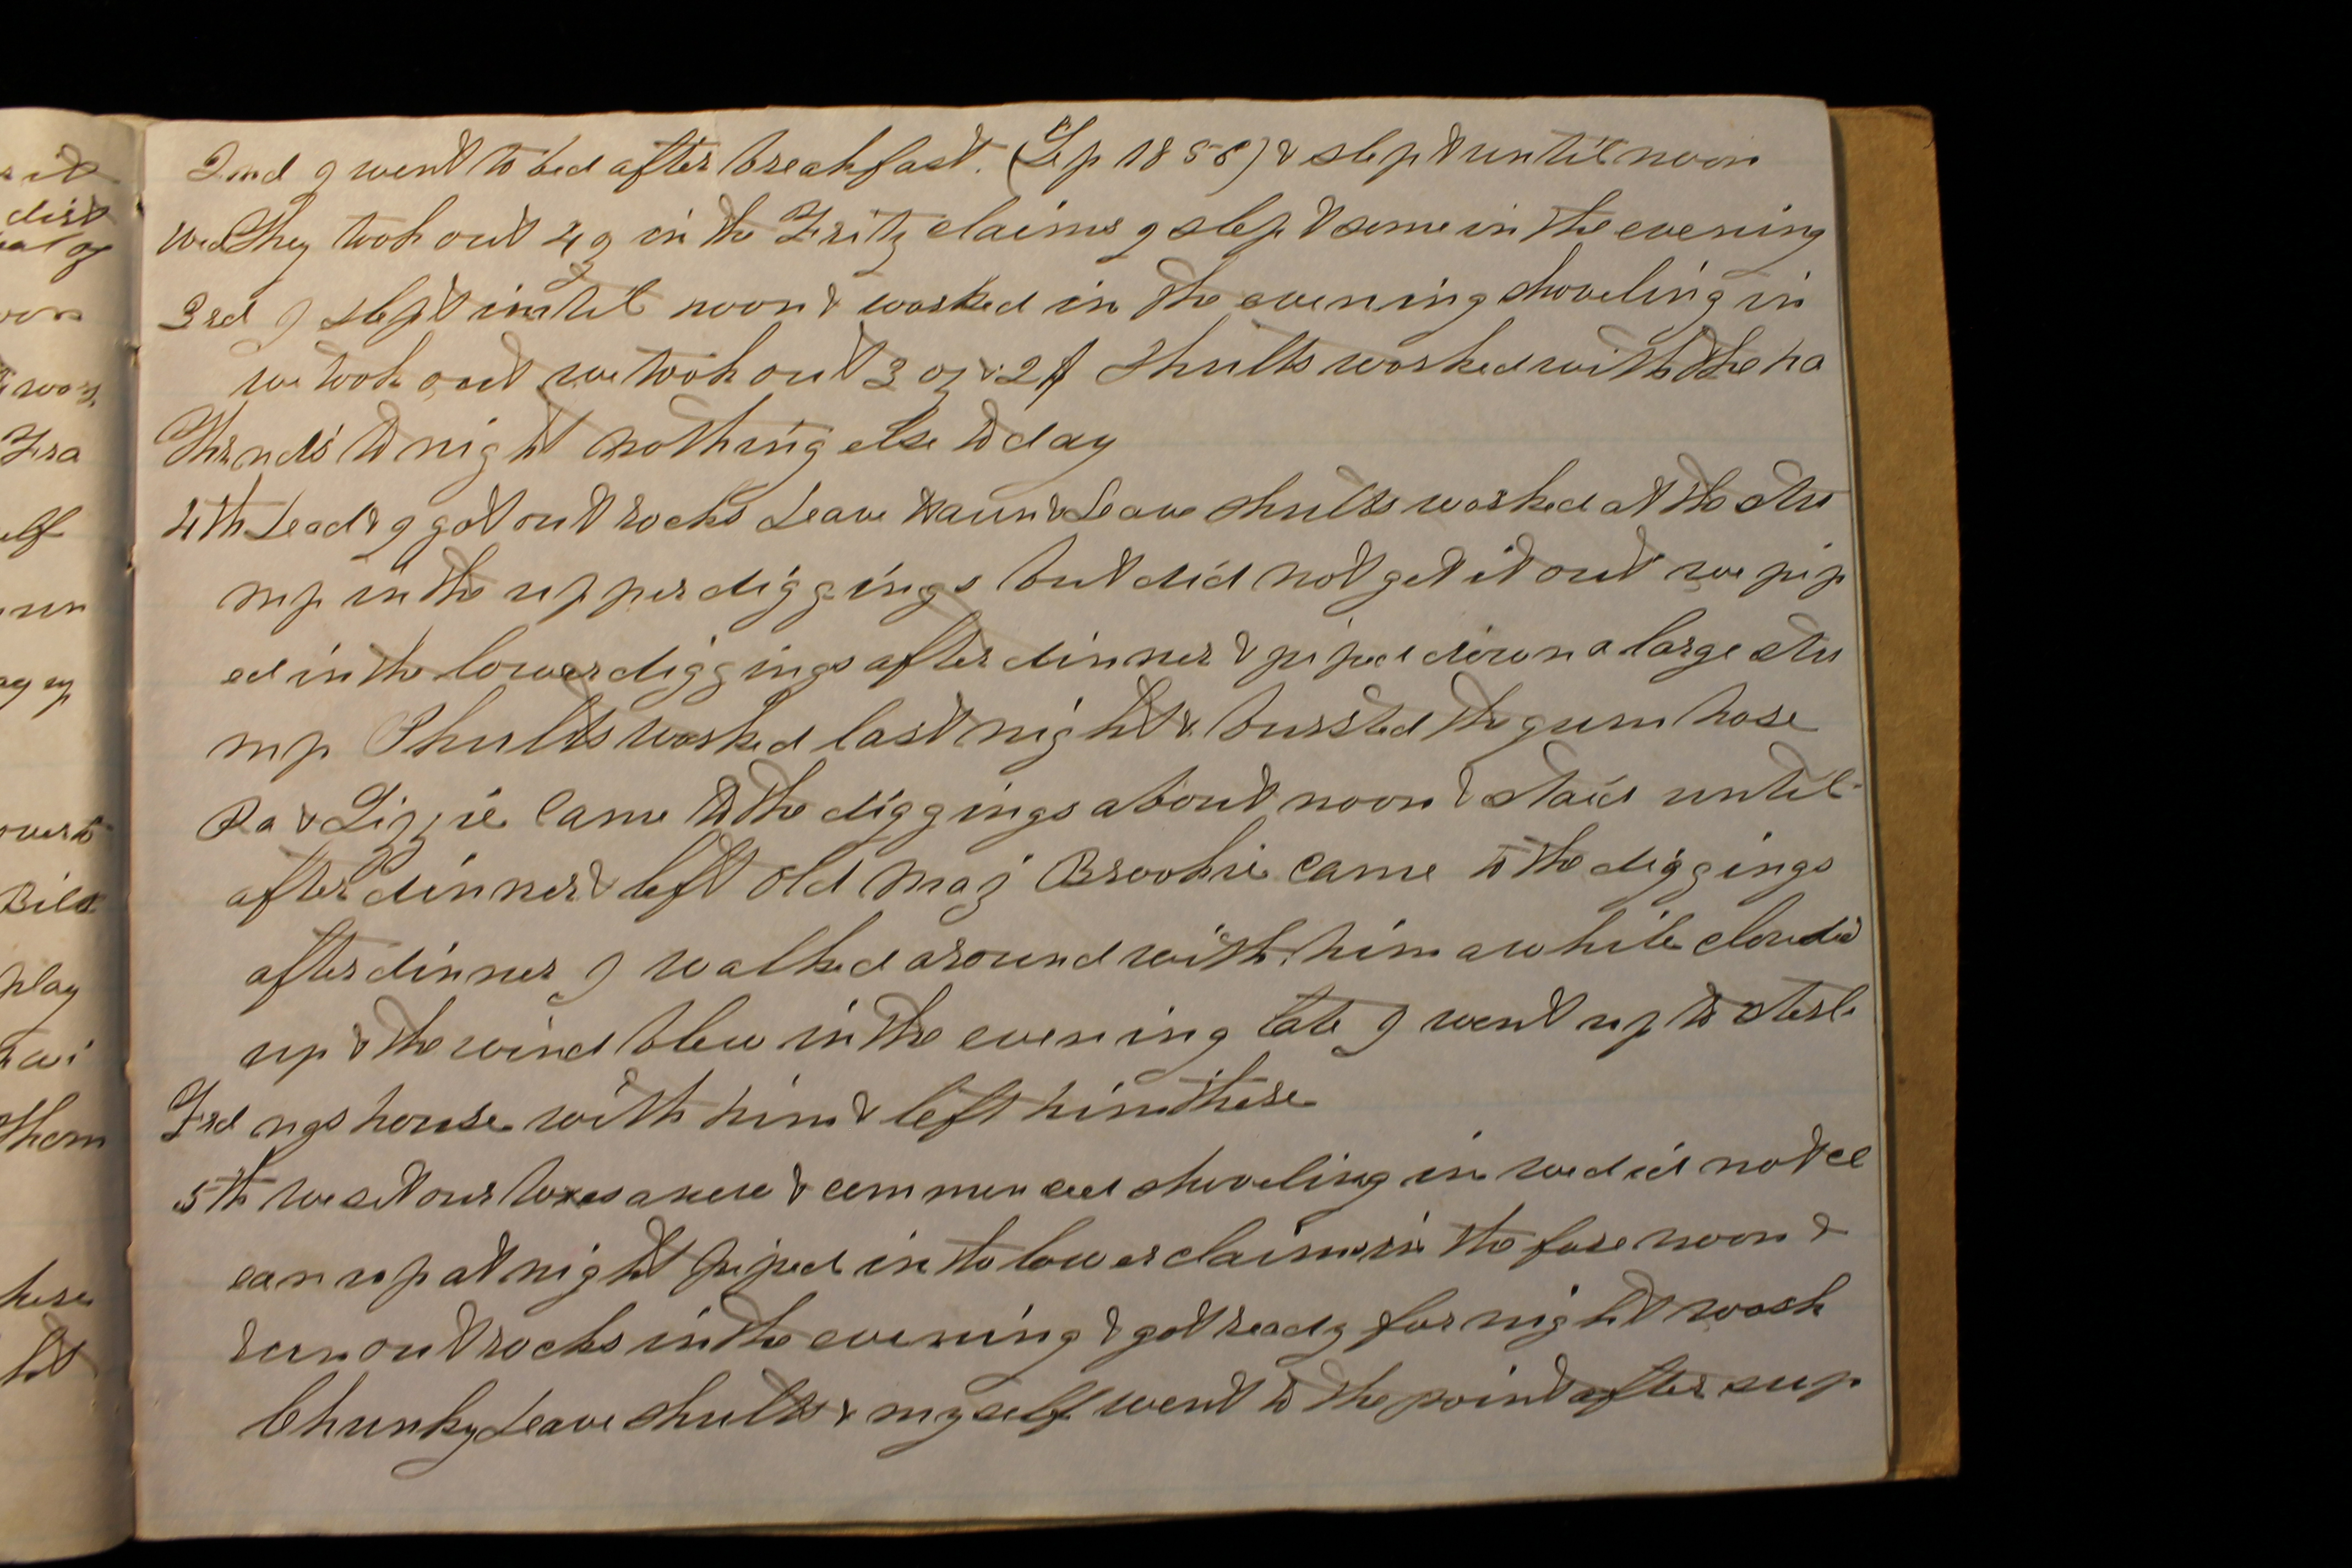 2nd I went to bed after breakfast. (Sep 1858) & slept until noon
Wed They took out 4 oz in the Fritz claims I slept some in the evening
3rd I slept until noon & worked in the evening shoveling in
we took out we took out 3 oz & 2 $ Shults worked with the ho
Thur nds to night nothing else to day
4th Lead & I got out rocks Leave & Shults worked at the stu
mp in the upper diggings but did not get it out we pip
ed in the lower diggings after dinner & piped down a large stu
mp Shults worked last night & bursted the gum hose
Pa & Lizzie came to the diggings about noon & staid until
after dinner & left old Maj Brookie came to the diggings
after dinner I walked around with him awhile clouded
up & the wind blew in the evening late I went up to Sterli
Frd ngs house with him & left him there
5th we set our boxes anew & commenced shoveling in we did not cl
ean up at night piped in to lower claims in the fore noon &
run out rocks in the evening & got ready for night work
Chunky Leave Shults & myself went to the point after sup
it
dist
of
wor
Fra
elf
un
over to
Bill
play
Thom
here
ht